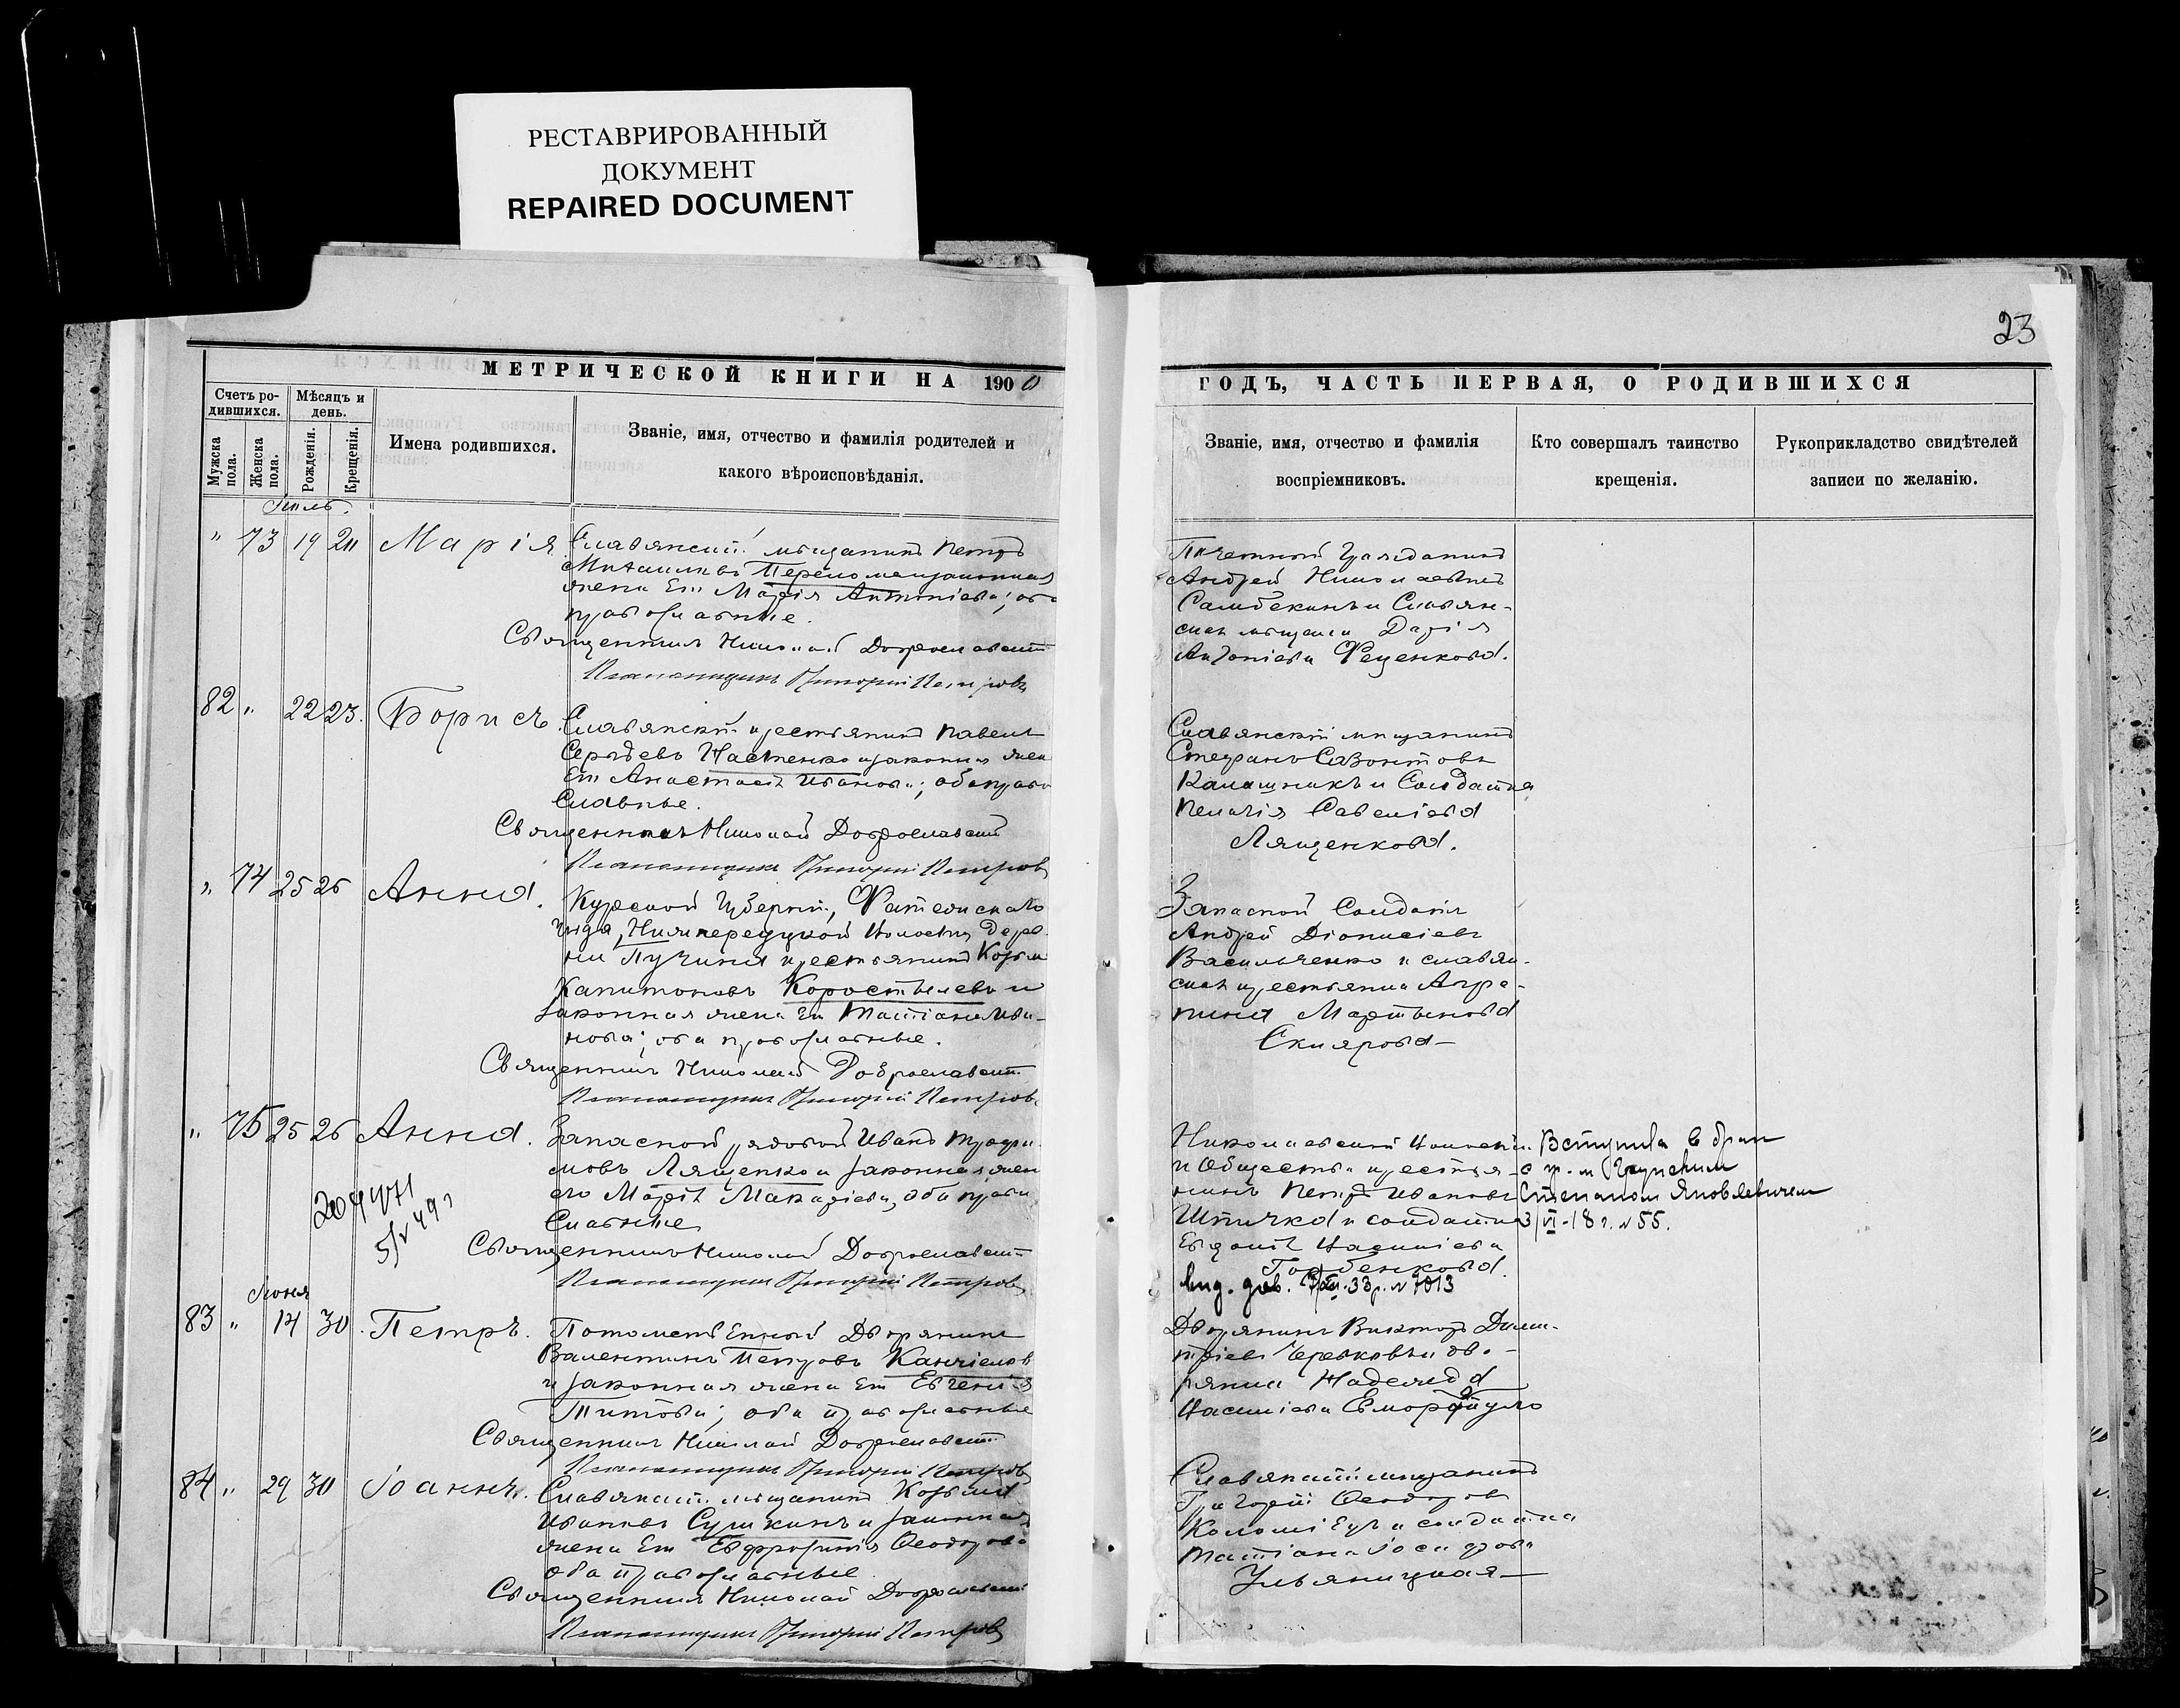 РЕСТАВРИРОВАННЫЙ
ДОКУМЕНТ
REPAIRED DOCUMENT
23
МЕТРИЧЕСКОЙ КНИГИ НА 1900
ГОДЪ, ЧАСТЬ ПЕРВАЯ, О РОДИВШИХСЯ
Счетъ ро-
дившихся.
Мѣсяцъ и
день.
Мужска
пола.
Женска
пола.
Рожденія.
Крещенія.
Имена родившихся.
Званіе, имя, отчество и фамилія родителей и
какого вѣроисповѣданія.
Званіе, имя, отчество и фамилія
воспріемниковъ.
Кто совершалъ таинство
крещенія.
Рукоприкладство свидѣтелей
записи по желанію.
" 73 19 Марія
Славянскій мѣщанинъ Петръ
жена Его Марія Антоніева; оба
православные.
Священникъ Николай Доброславскій
Псаломщикъ Григорій Петровъ
Почетный Гражданинъ
Андрей Николаевъ
Самбекинъ и Славян-
ская мѣщанка Дарія
Антоніева Феценкова.
82 " 22 23. Борисъ.
Славянскій крестьянинъ Павелъ
Сергѣевъ Настенко и законная жена
Его Анастасія Иванова; оба право
славные.
Священникъ Николай Доброславскій
Псаломщикъ Григорій Петровъ
Славянскій мѣщанинъ
Стефанъ Созонтовъ
Калашникъ и Солдатка
Пелагія Савеліева
Лященкова.
" 74 25 26 Анна.
Курской Губерніи, Фатежскаго
уѣзда, волости, Дерев-
ни Пучина крестьянинъ Козьма
Капитоновъ Коростелевъ и
законная жена Его Татіана Ива-
нова; оба православные.
Священникъ Николай Доброславскій
Псаломщикъ Григорій Петровъ
Запасной Солдатъ
Андрей Діонисіевъ
Васильченко и славян-
ская крестьянка Агра-
пина Мартынова
Склярова
" 75 25 26 Анна.
Запасной рядовой Иванъ Трофи-
мовъ Лященко и законная жена
его Марія Макаріева, оба право
славные
Священникъ Николай Доброславскій
Псаломщикъ Григорій Петровъ
Николаевской волости
и Общества крестья-
нинъ Петръ Ивановъ
Шпичка и солдатка
Евдокія Василіева
Горбенкова.
Вступила в брак
с гр-м
Степаном Яковлевичем
3/VI-18 г. №55.
Июня
83 " 14 30 Петръ.
Потомственный Дворянинъ
Валентинъ Петровъ
и законная жена Его Евгенія
Титова; оба православные
Священникъ Николай Доброславскій
Псаломщикъ Григорій Петровъ
Дворянинъ Викторъ Дими-
тріевъ Черевковъ и дво-
рянка Надежда
Василіева
84 " 29 30 Іоаннъ.
Славянскій мѣщанинъ Козьма
Ивановъ Сушкинъ и законная
жена Его Евфросинія Ѳеодорова
оба православные
Священникъ Николай Доброславскій
Псаломщикъ Григорій Петровъ
Славянскій мѣщанинъ
Григорій Ѳеодоровъ
Коломіецъ и солдатка
Татіана Іосифова
Ульяницкая